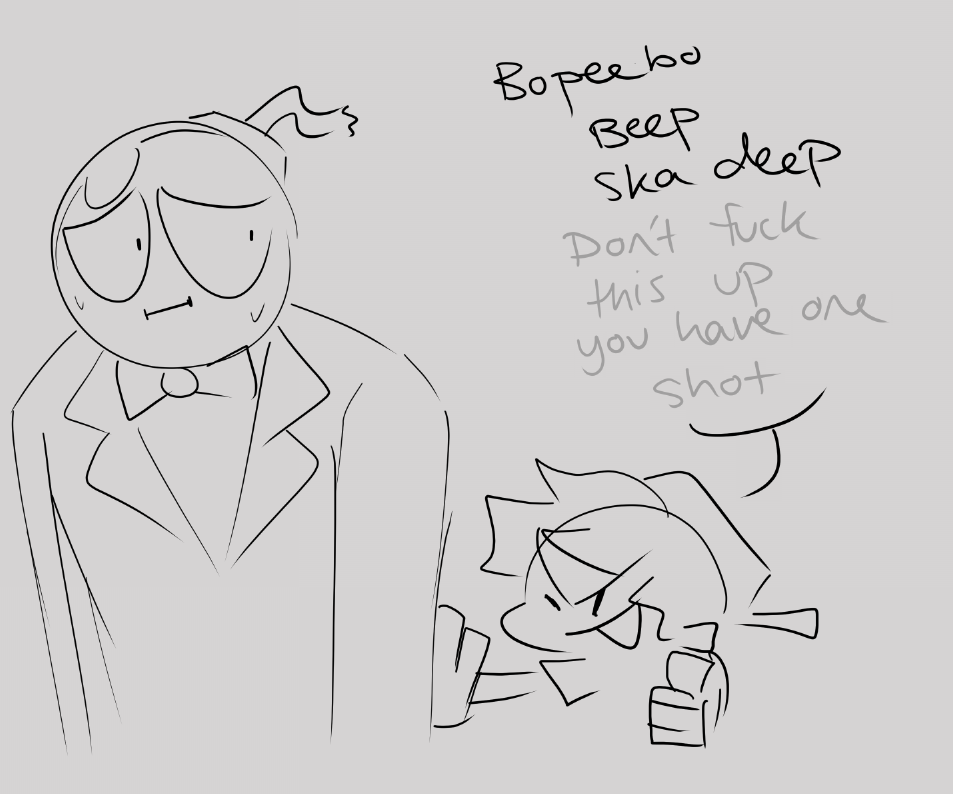 Bopeebo
Beep
ska deep
Don't fuck
this up
you have one
shot